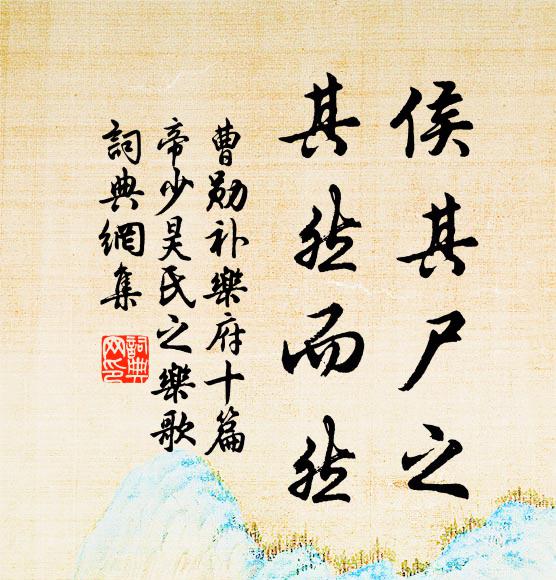 侯其尸之
其然而然
曹勋补樂府十篇
帝少昊氏之樂歌
詞典網集
詞典网印